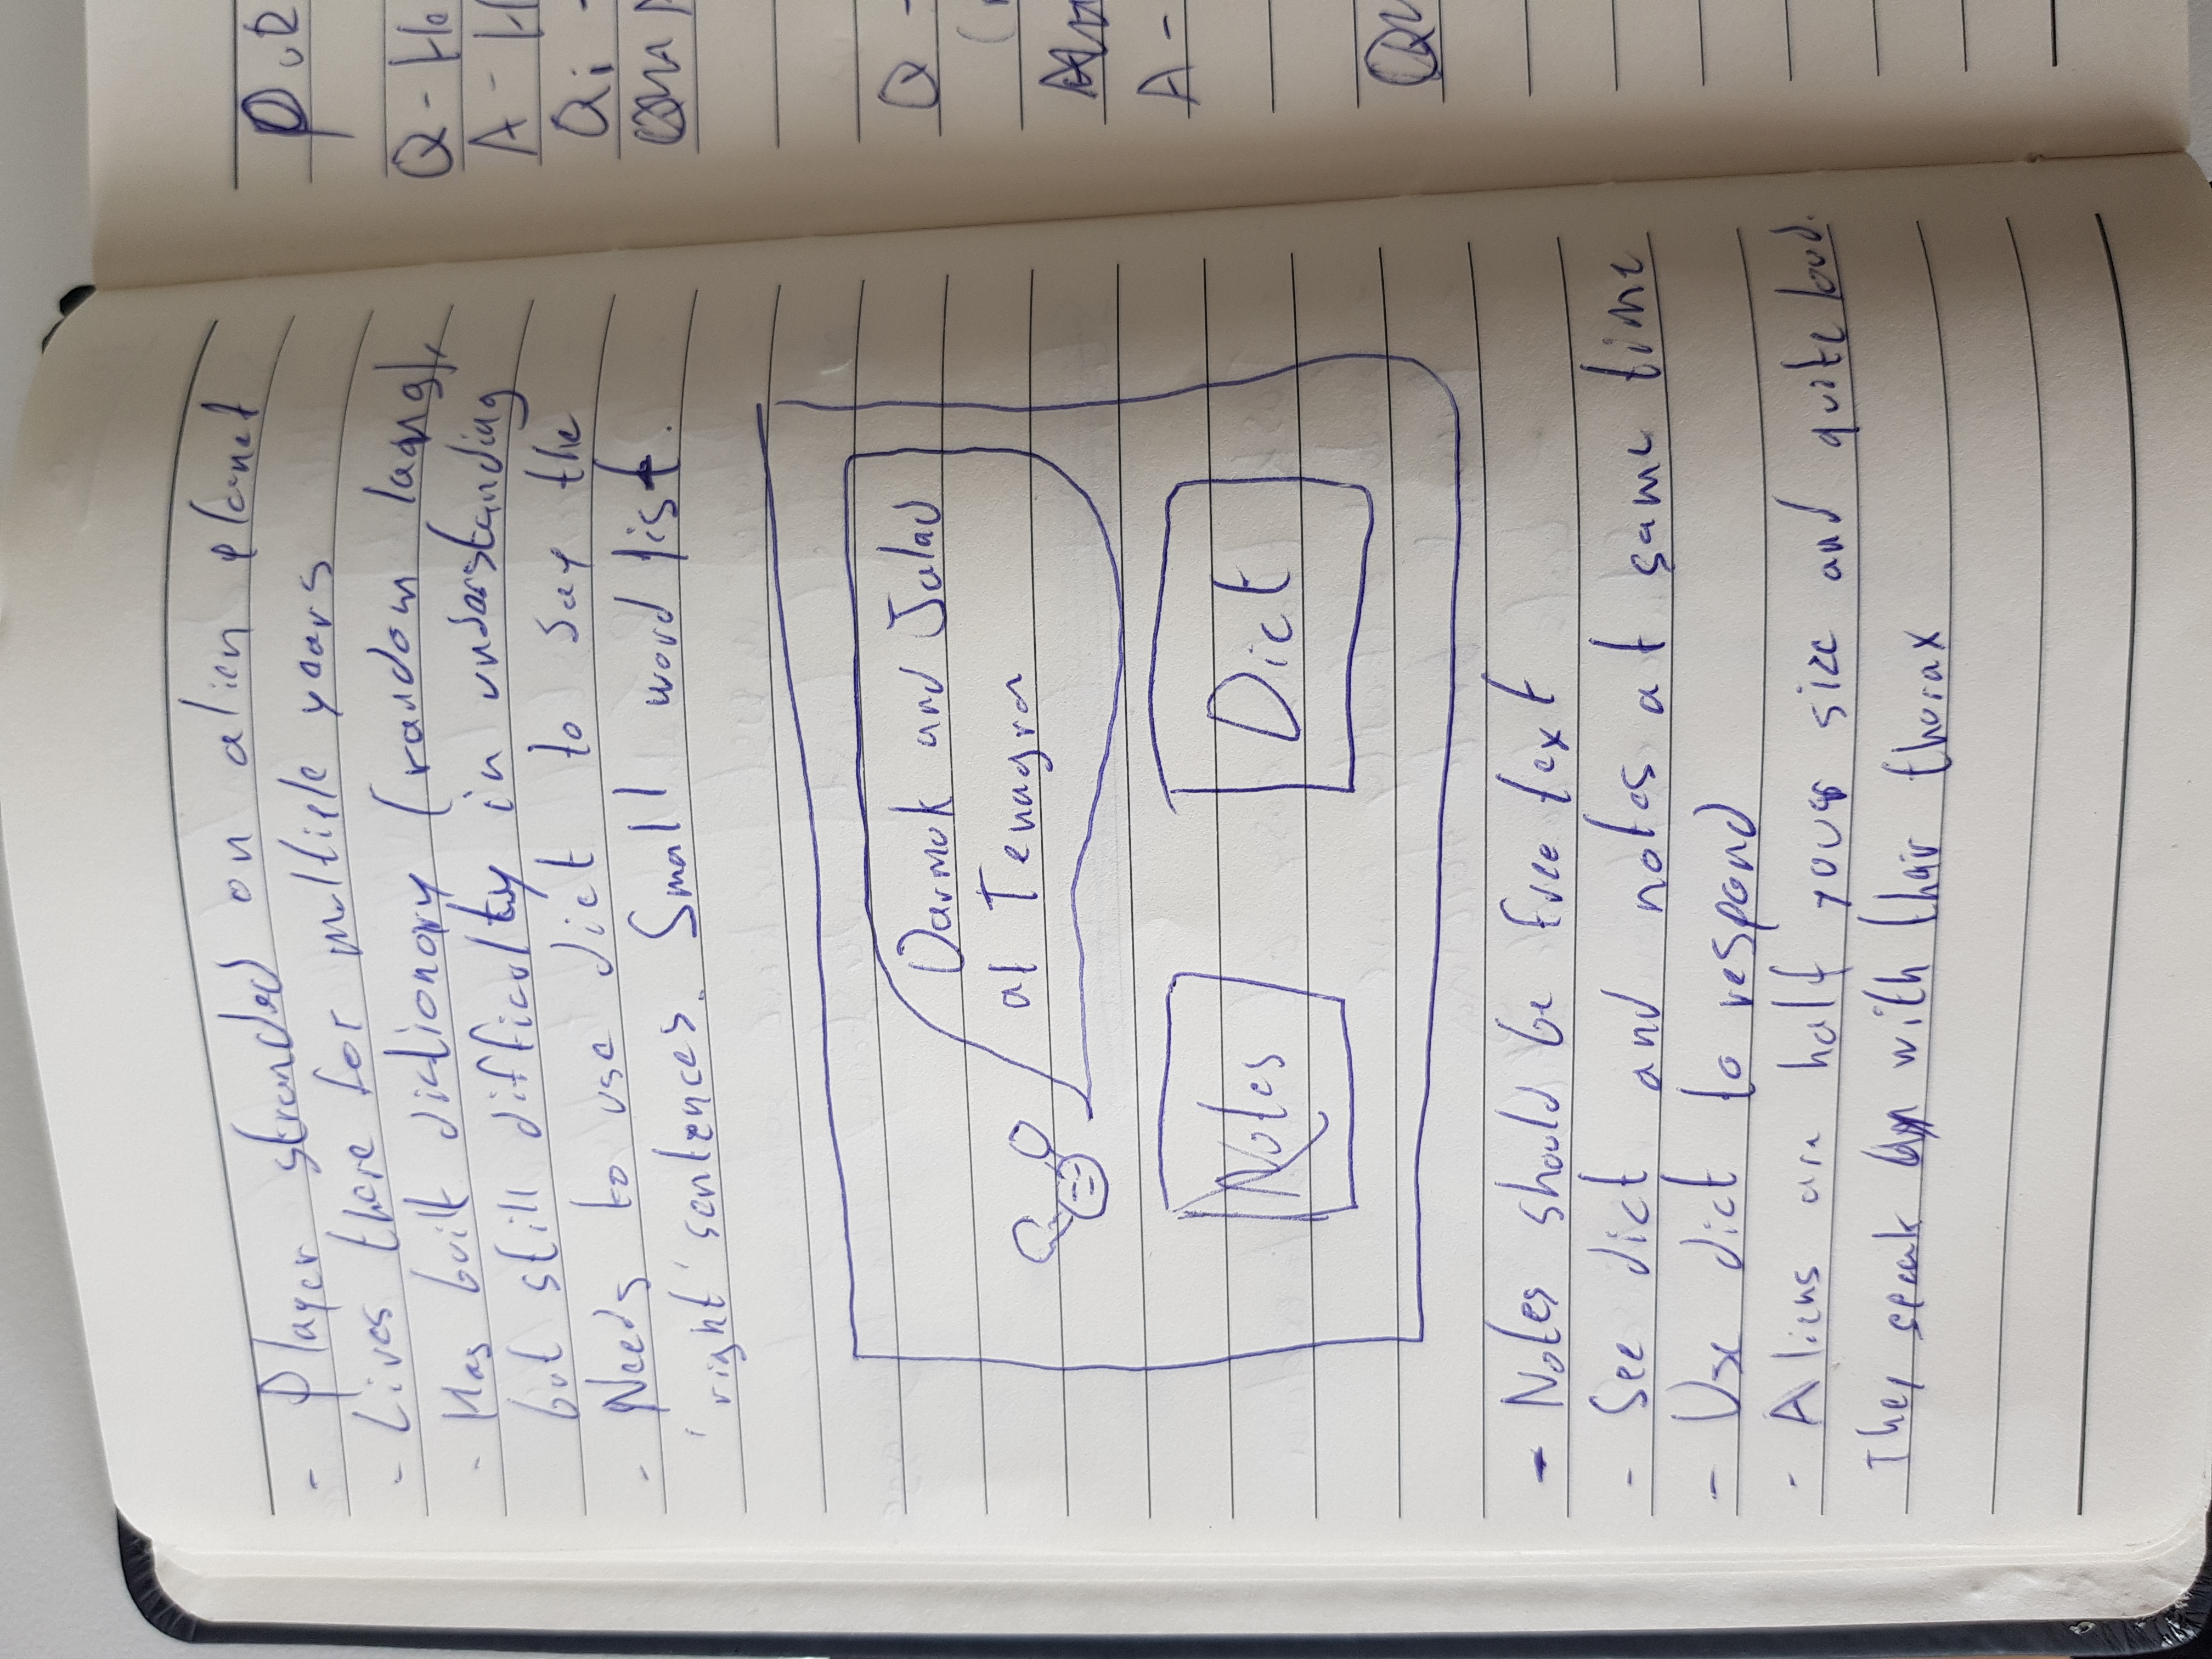 - Player stranded on alien planet
- Lives there for multiple years
- Has built dictionary (random lang),
but still difficulty in understanding
- Needs to use dict to say the
'right' sentences. Small word list.
Darmok and Jalad
at Tenagra
Notes
Dict
- Notes should be free text
- See dict and notes at same time
- Use dict to respond
- Aliens are half your size and quite loud.
They speak with their thorax
Q -
A - H
Q
A -